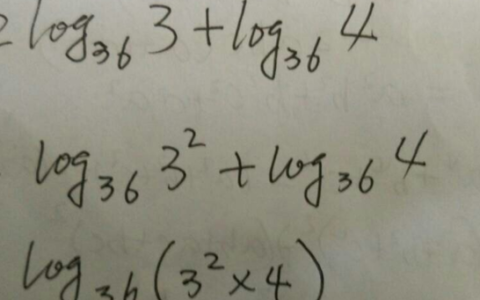 2 log₃₆ 3 + log₃₆ 4
log₃₆ 3² + log₃₆ 4
log₃₆ (3² × 4)